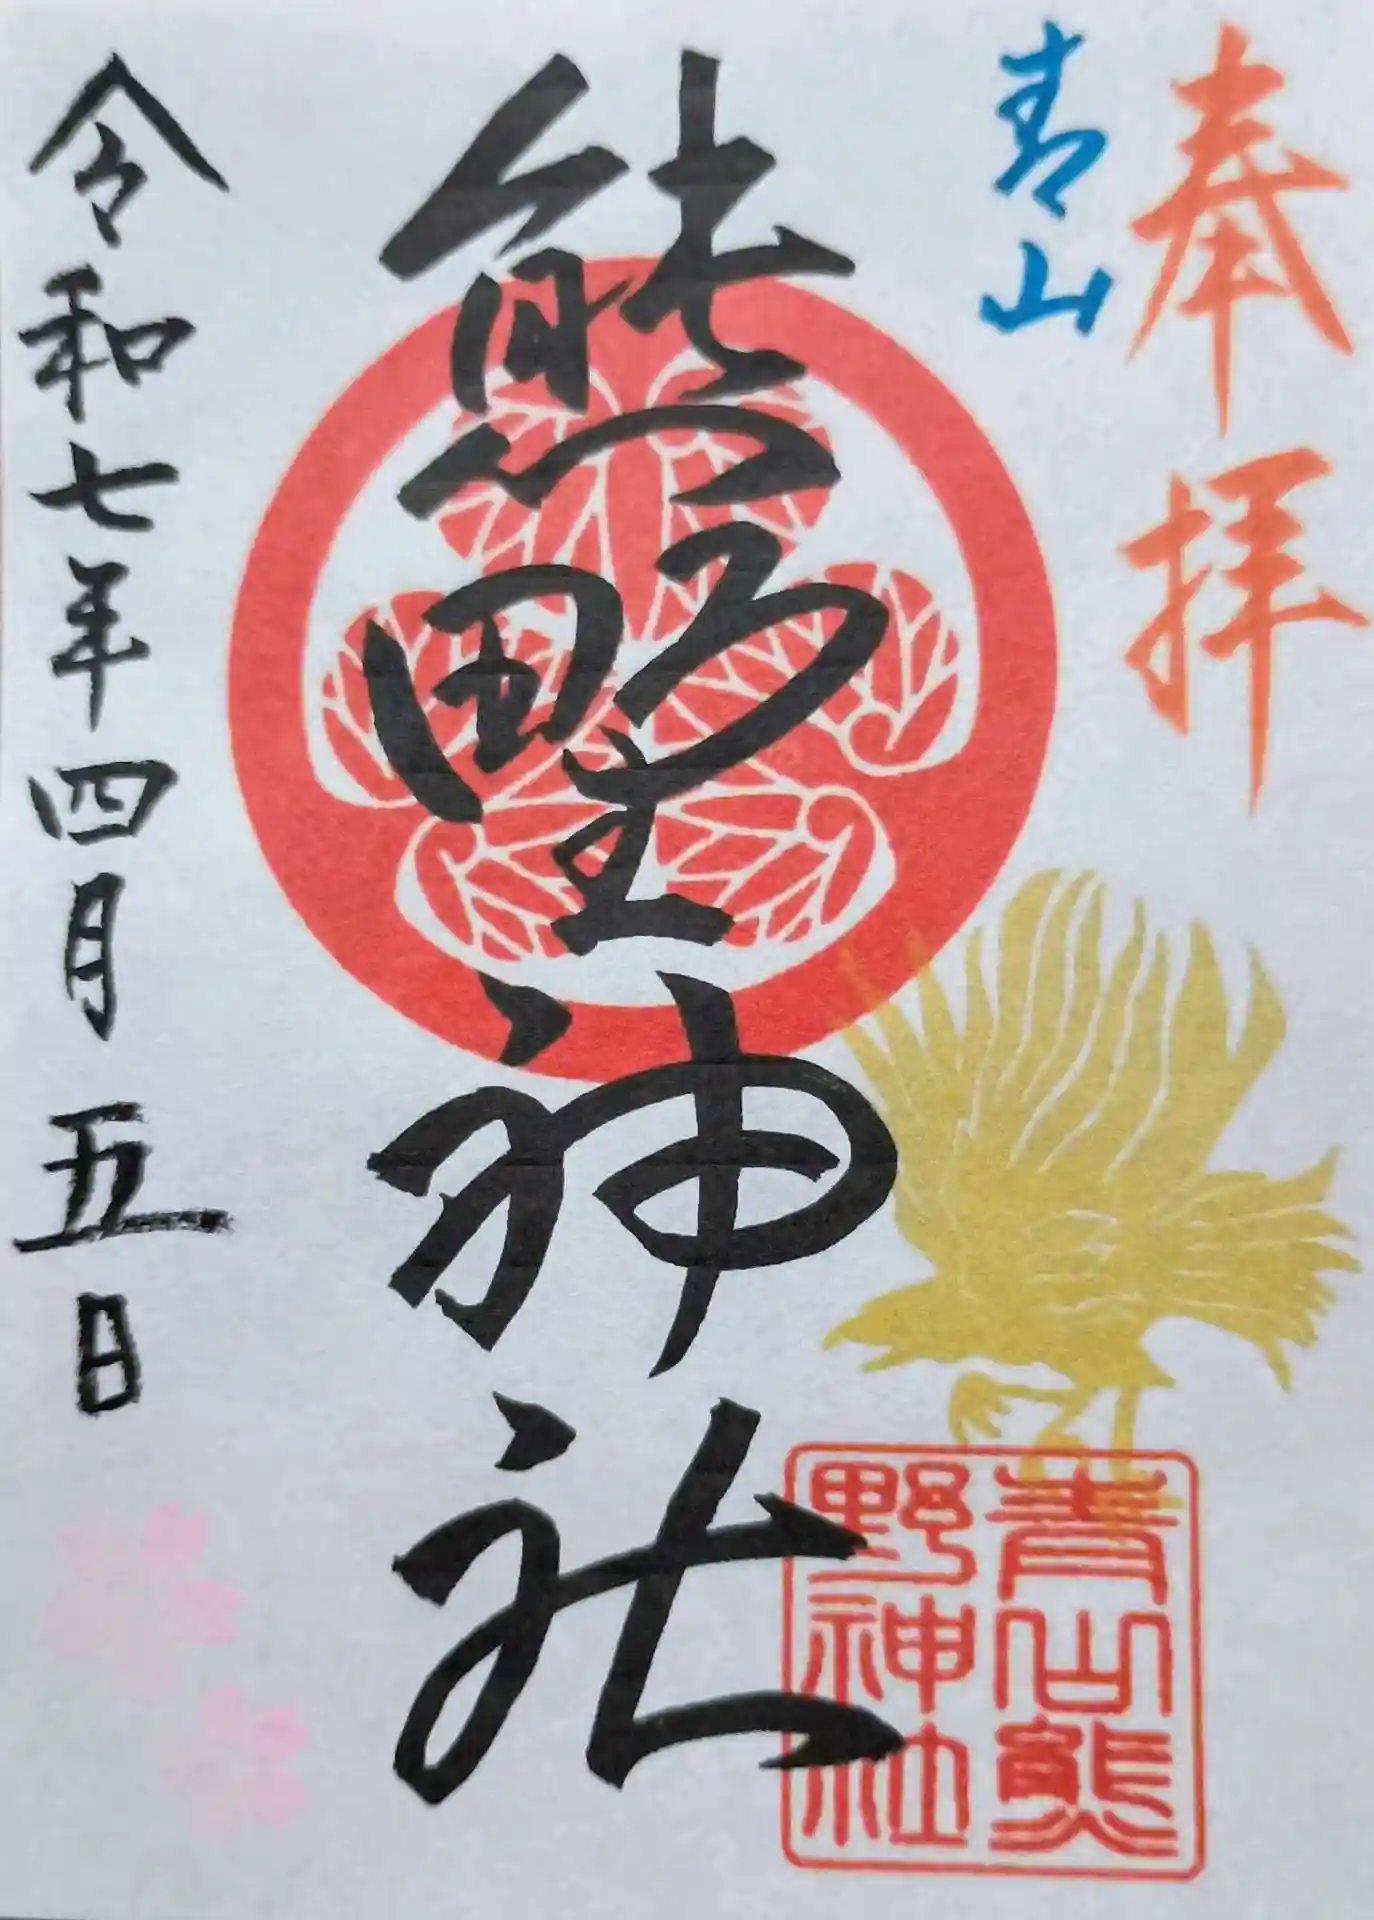 奉拝
青山
熊野神社
令和七年四月五日
青山熊
野神社